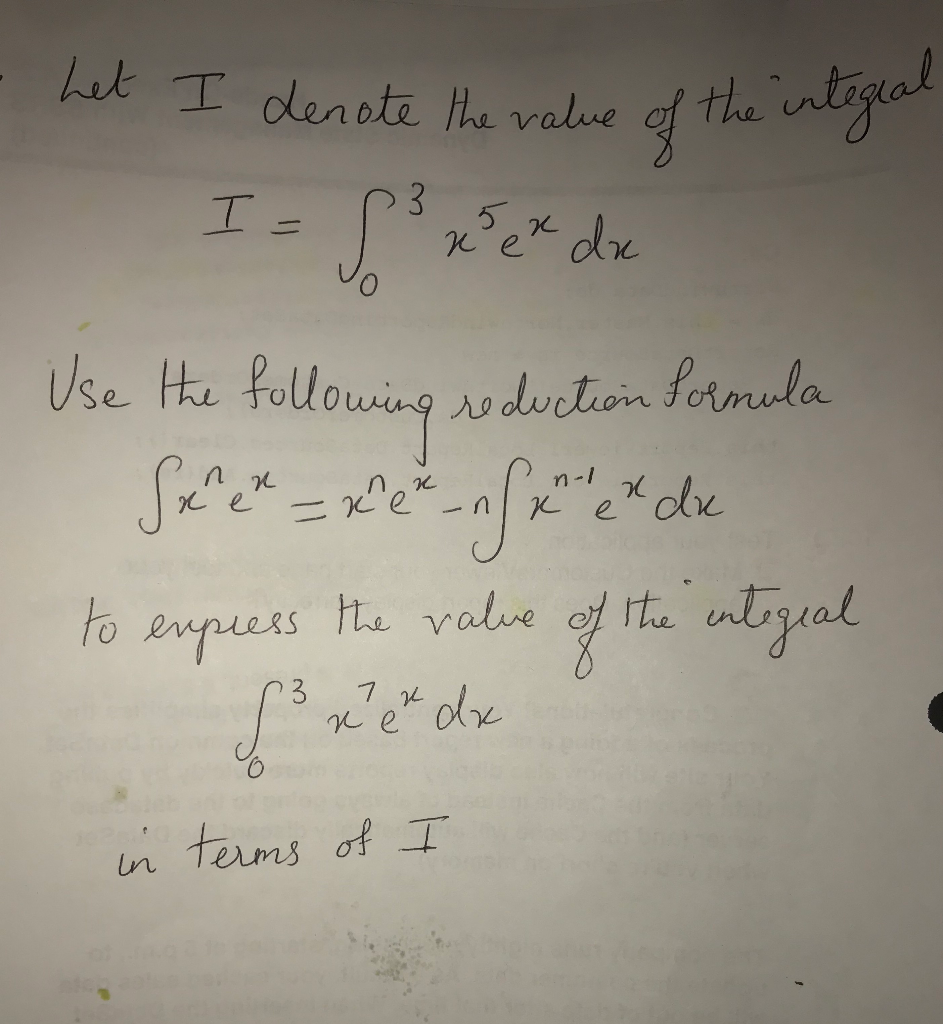 Let I denote the value of the integral
I = ∫₀³ x⁵eˣ dx
Use the following reduction formula
∫xⁿeˣ = xⁿeˣ - n∫xⁿ⁻¹eˣ dx
to express the value of the integral
∫₀³ x⁷eˣ dx
in terms of I